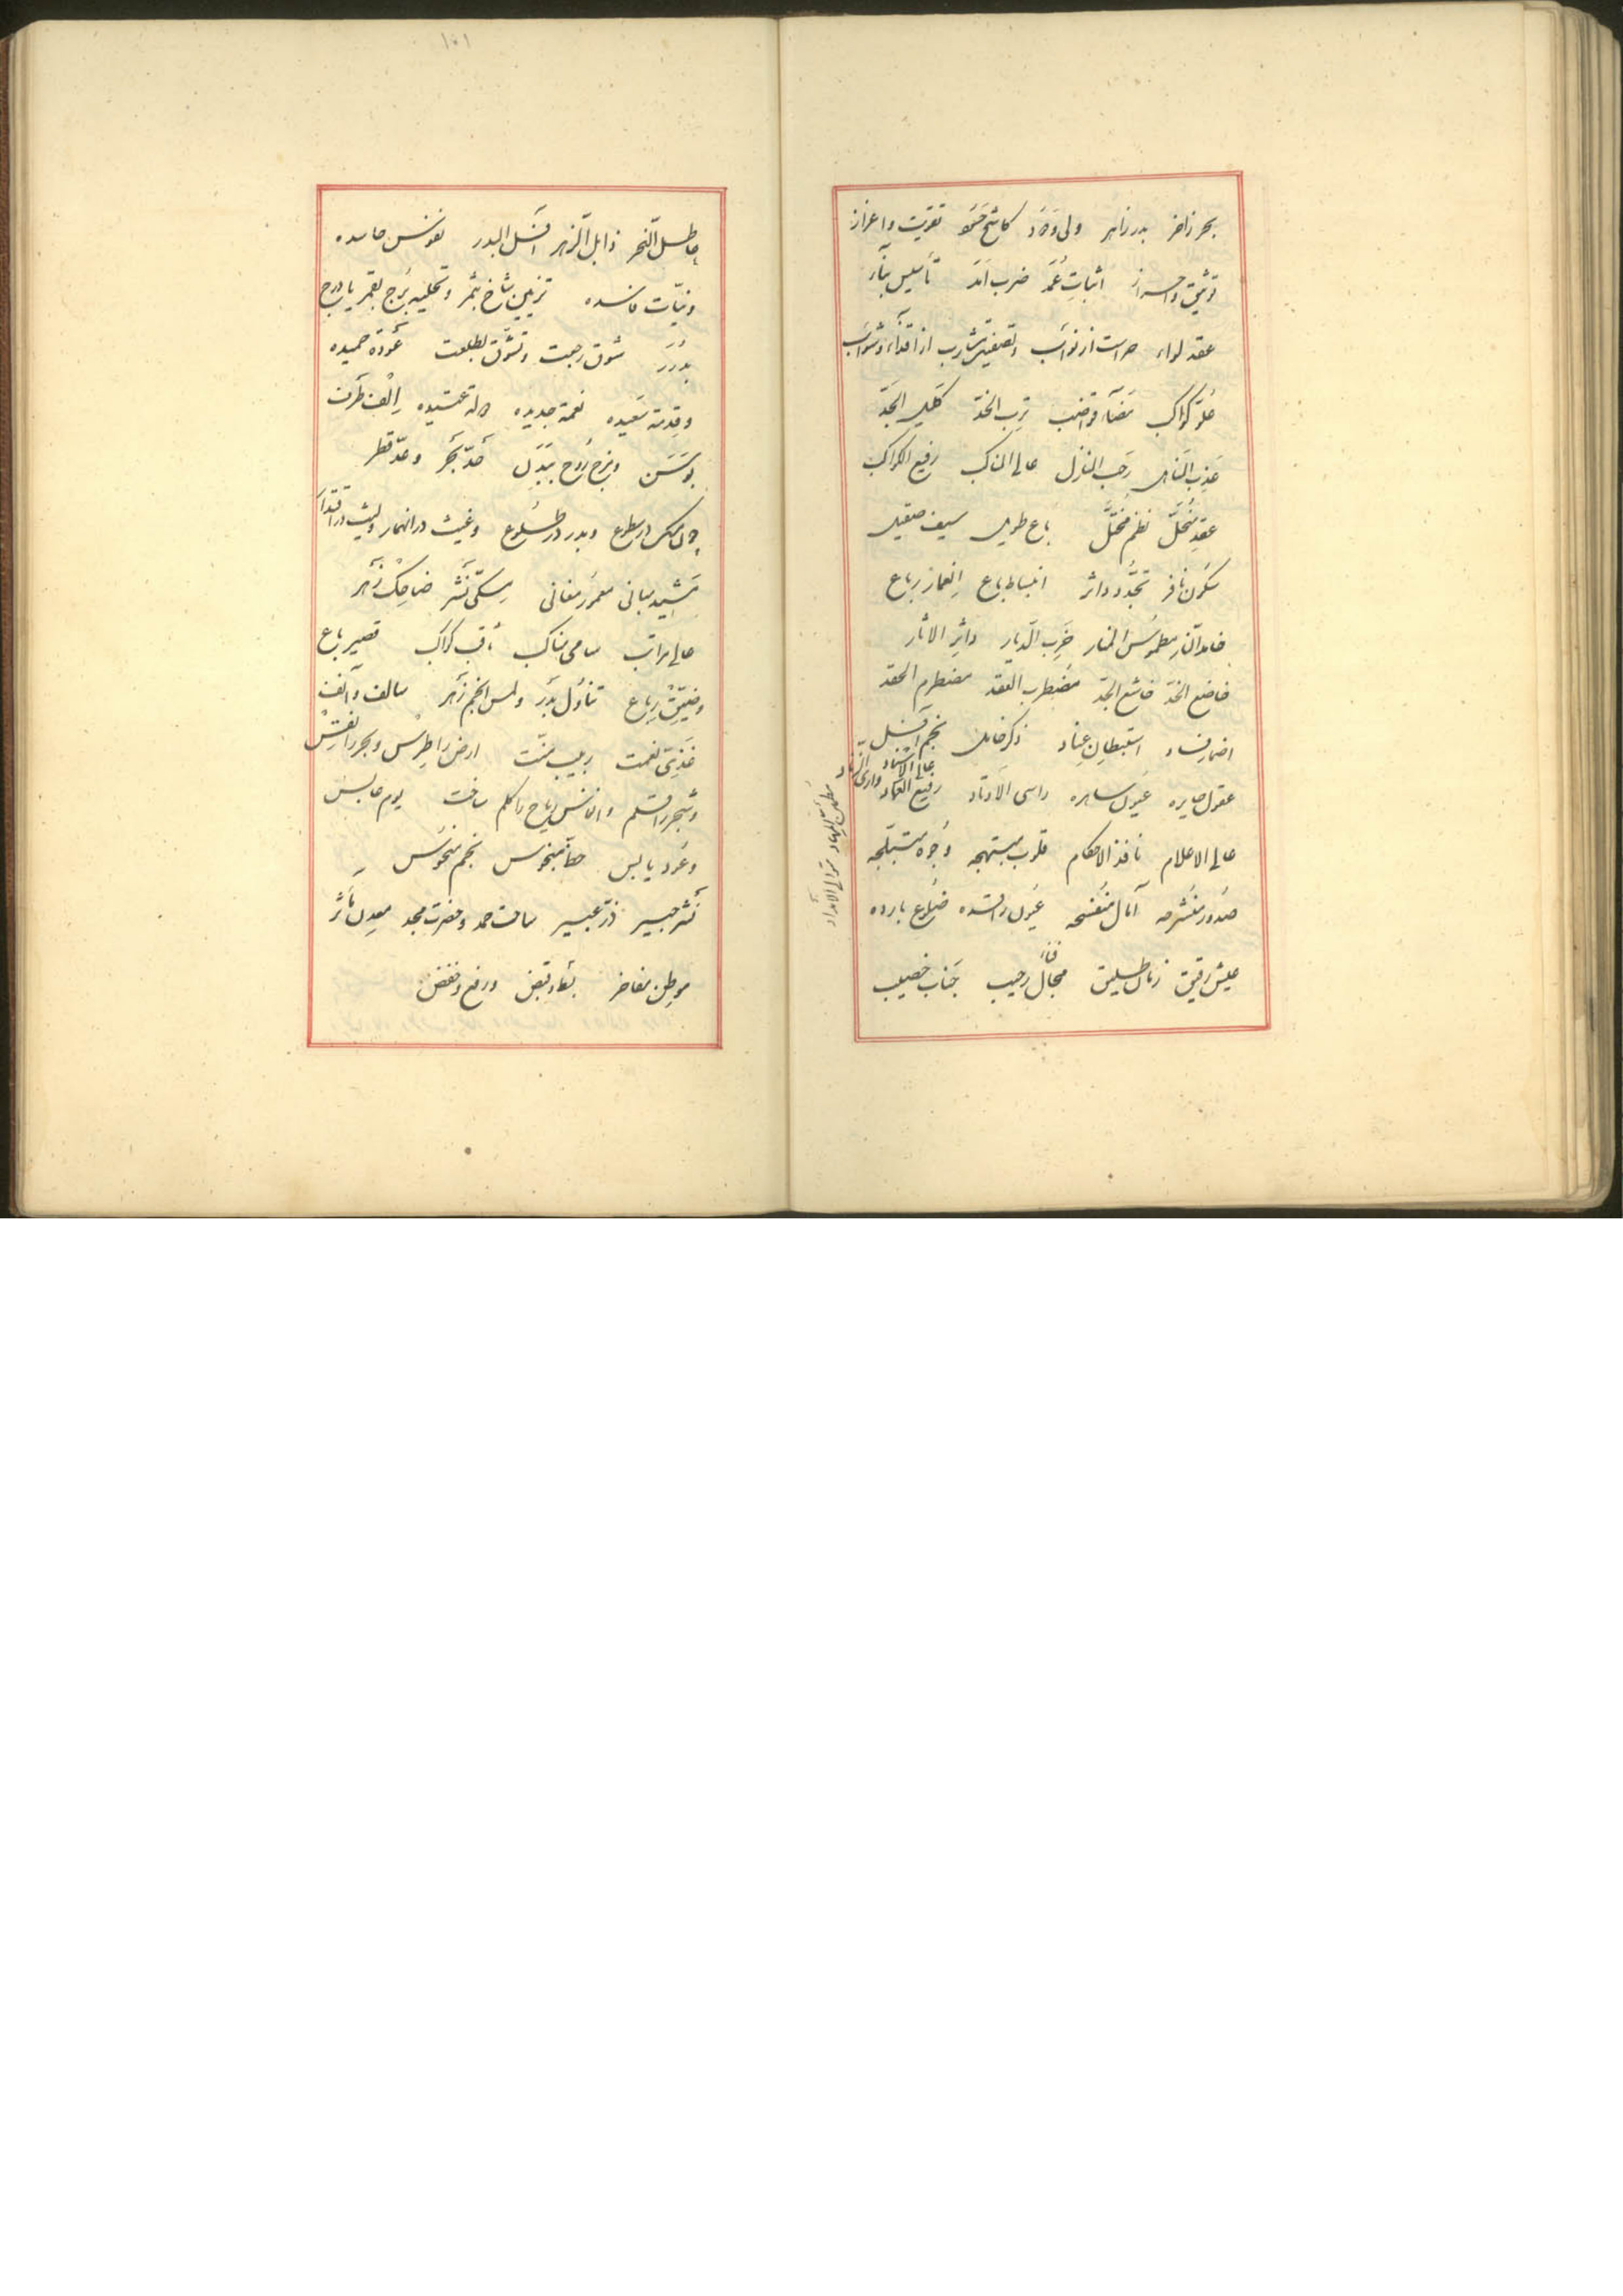 بحر زاخر بدر زاهر ولی ودود کاشح تقویت و اعزاز
توثیق و احراز اثبات عمد ضرب امد تأسیس بناء
عقد لواء حراست از نوائب و تصفیه مشارب از اقذاء و شوائب
علو کواکب مضاء قواضب ترب الخد کلیل الحد
عذب المناهل رحب المنازل عالی المناکب رفیع الکواکب
عقد منحل نظم مختل باع طویل سیف صقیل
سکون نافر تجدد داثر انبساط باع رباع
خامد النار مطموس المنار خرب الدیار داثر الاثار
خاضع الخد خاشع الجد مضطرب العقد مضطرم الحقد
اضمار فساد استبطان عناد ذکر خامل نجم آفل
عقول حایره عیون ساهره راسی الاوتاد رفیع العماد عالی الاسناد واری الزناد
متوالی الامداد
عالی الاعلام نافذ الاحکام قلوب مبتهجه وجوه متبلجه
صدور منشرحه آمال منفسحه عیون راقده ضلوع بارده
عیش رقیق زمان طلیق مجال رحیب جناب خصیب
فناء
۱۰۱
عاطل النحر ذابل الزهر آفل البدر نفوس حاسده
و نیات فاسده تزیین شاخ بثمر و تحلیه برج بقمر یا درج
بدرر شوق رجعت و تشوق بطلعت عوده حمیده
و قدمة سعیده نعمة جدیده الف طرف
بوسن و مزج روح ببدن حد بحر و عد قطر
چون مسک در سطوع و بدر در طلوع و غیث در انهمار و لیث در اقتدار
مشید مبانی معمور مغانی مسکی نشر ضاحک زهر
عالی مراتب سامی مناکب ثاقب کواکب قصیر باع
و ضیق رباع تناول بدر و لمس انجم زهر سالف و آنف
غذی نعمت ربیب منت ارض را طرس و بحر را نقس
و شجر را قلم و انفاس ریاح را کلم ساخت یوم عابس
و عود یابس حظ منحوس نجم منحوس
نشر عبیر ساحت حمد و حضرت مجد معدن مآثر
موطن مفاخر بقا و قبض و رفع و خفض